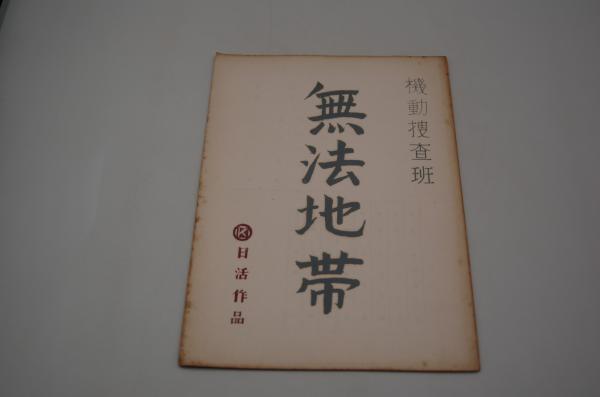 機動捜査班
無法地帯
日活作品